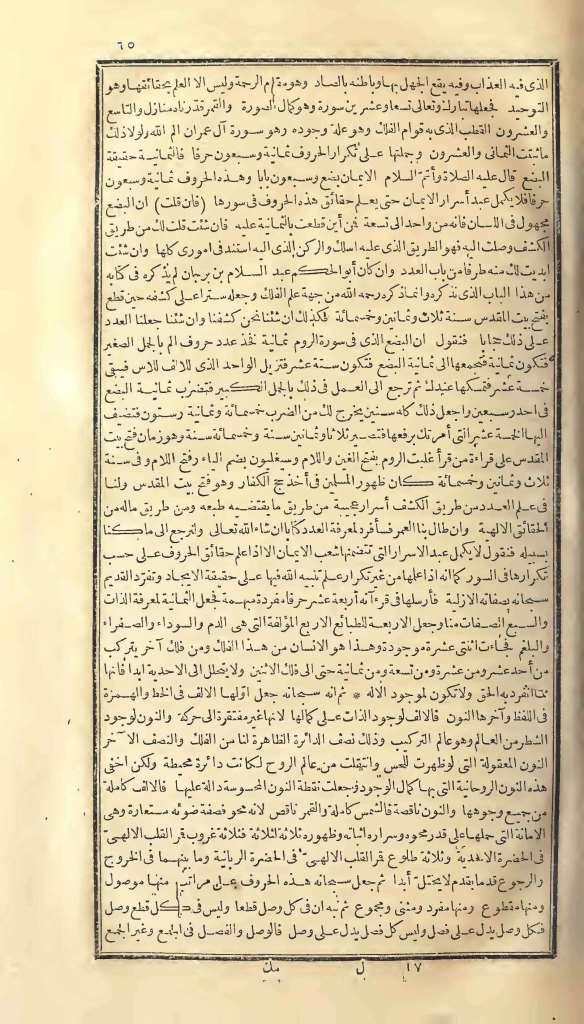 ٦٥
الذى فيه العذاب وفيه يقع الجهل بها وباطنه بالصاد وهو مقام الرحمة وليس الا العلم بحقائقها وهو
التوحيد فجعلها تبارك وتعالى تسعا وعشرين سورة وهو كمال الصورة والقمر قدرناه منازل والتاسع
والعشرون القطب الذى به قوام الفلك وهو علة وجوده وهو سورة آل عمران الم الله ولولا ذلك
ما ثبتت الثمانى والعشرون وجملتها على تكرار الحروف ثمانية وسبعون حرفا فالثمانية حقيقة
البضع قال عليه الصلاة وأتم السلام الايمان بضع وسبعون بابا وهذه الحروف ثمانية وسبعون
حرفا فلا يكمل عبد أسرار الايمان حتى يعلم حقائق هذه الحروف فى سورها (فان قلت) ان البضع
مجهول فى اللسان فانه من واحد الى تسعة فمن أين قطعت بالثمانية عليه فان شئت قلت لك من طريق
الكشف وصلت اليه فهو الطريق الذى عليه اسلك والركن الذى اليه استند فى امورى كلها وان شئت
ابديت لك منه طرفا من باب العدد وان كان أبو الحكم عبد السلام بن برجان لم يذكره فى كتابه
من هذا الباب الذى نذكره وانما ذكره رحمه الله من جهة علم الفلك وجعله سترا على كشفه حين قطع
بفتح بيت المقدس سنة ثلاث وثمانين وخمسمائة فكذلك ان شئنا نحن كشفنا وان شئنا جعلنا العدد
على ذلك حجابا فنقول ان البضع الذى فى سورة الروم ثمانية نخذ عدد حروف الم بالجمل الصغير
فتكون ثمانية فتجمعها الى ثمانية البضع فتكون ستة عشر فتزيل الواحد الذى للالف للاس فيبقى
خمسة عشر فتمسكها عندك ثم ترجع الى العمل فى ذلك بالجمل الكبير فتضرب ثمانية البضع
فى احد وسبعين واجعل ذلك كله سنين يخرج لك من الضرب خمسمائة وثمانية وستون فتضيف
اليها الخمسة عشر التى أمرتك برفعها فتصير ثلاثا وثمانين سنة وخمسمائة سنة وهو زمان فتح بيت
المقدس على قراءة من قرأ غلبت الروم بفتح الغين واللام وسيغلبون بضم الياء وفتح اللام وفى سنة
ثلاث وثمانين وخمسمائة كان ظهور المسلمين فى أخذ حج الكفار وهو فتح بيت المقدس ولنا
فى علم العدد من طريق الكشف أسرار عجيبة من طريق ما يقتضيه طبعه ومن طريق ماله من
الحقائق الالهية وان طال بنا العمر فسأفرد لمعرفة العدد كتابا ان شاء الله تعالى ولنرجع الى ما كنا
بسبيله فنقول لا يكمل عبد الاسرار التى تتضمنها شعب الايمان الا اذا علم حقائق الحروف على حسب
تكرارها فى السور كما انه اذا علمها من غير تكرار علم تنبيه الله فيها على حقيقة الايجاد وتفرد القديم
سبحانه بصفاته الازلية فأرسلها فى قرءآنه أربعة عشر حرفا مفردة مبهمة فجعل الثمانية لمعرفة الذات
والسبع الصفات منا وجعل الاربعة للطبائع الاربع المؤلفة التى هى الدم والسوداء والصفراء
والبلغم فجاءت اثنتى عشرة موجودة وهذا هو الانسان من هذا الفلك ومن فلك آخر يتركب
من أحد عشر ومن عشرة ومن تسعة ومن ثمانية حتى الى فلك الاثنين ولا يتحلل الى الاحدية ابدا فانها
مما انفرد به الحق ولا تكون لموجود الا له * ثم انه سبحانه جعل اولها الالف فى الخط والهمزة
فى اللفظ وآخرها النون فالالف لوجود الذات على كمالها لانها غير مفتقرة الى حركة والنون لوجود
الشطر من العالم وهو عالم التركيب وذلك نصف الدائرة الظاهرة لنا من الفلك والنصف الآخر
النون المعقولة التى لو ظهرت للحس وانتقلت من عالم الروح لكانت دائرة محيطة ولكن اخفى
هذه النون الروحانية التى بها كمال الوجود وجعلت نقطة النون المحسوسة دالة عليها فالالف كاملة
من جميع وجوهها والنون ناقصة فالشمس كاملة والقمر ناقص لانه محو فصفة ضوئه مستعارة وهى
الامانة التى حملها على قدر محوه وسراره اثباته وظهوره ثلاثة لثلاثة فثلاثة غروب قمر القلب الالهى
فى الحضرة الاحدية وثلاثة طلوع قمر القلب الالهى فى الحضرة الربانية وما بينهما فى الخروج
والرجوع قدما بقدم لا يختل أبدا ثم جعل سبحانه هذه الحروف على مراتب منها موصول
ومنها مقطوع ومنها مفرد ومثنى ومجموع ثم نبه ان فى كل وصل قطعا وليس فى كل قطع وصل
فكل وصل يدل على فصل وليس كل فصل يدل على وصل فالوصل والفصل فى الجمع وغير الجمع
١٧ ل مك